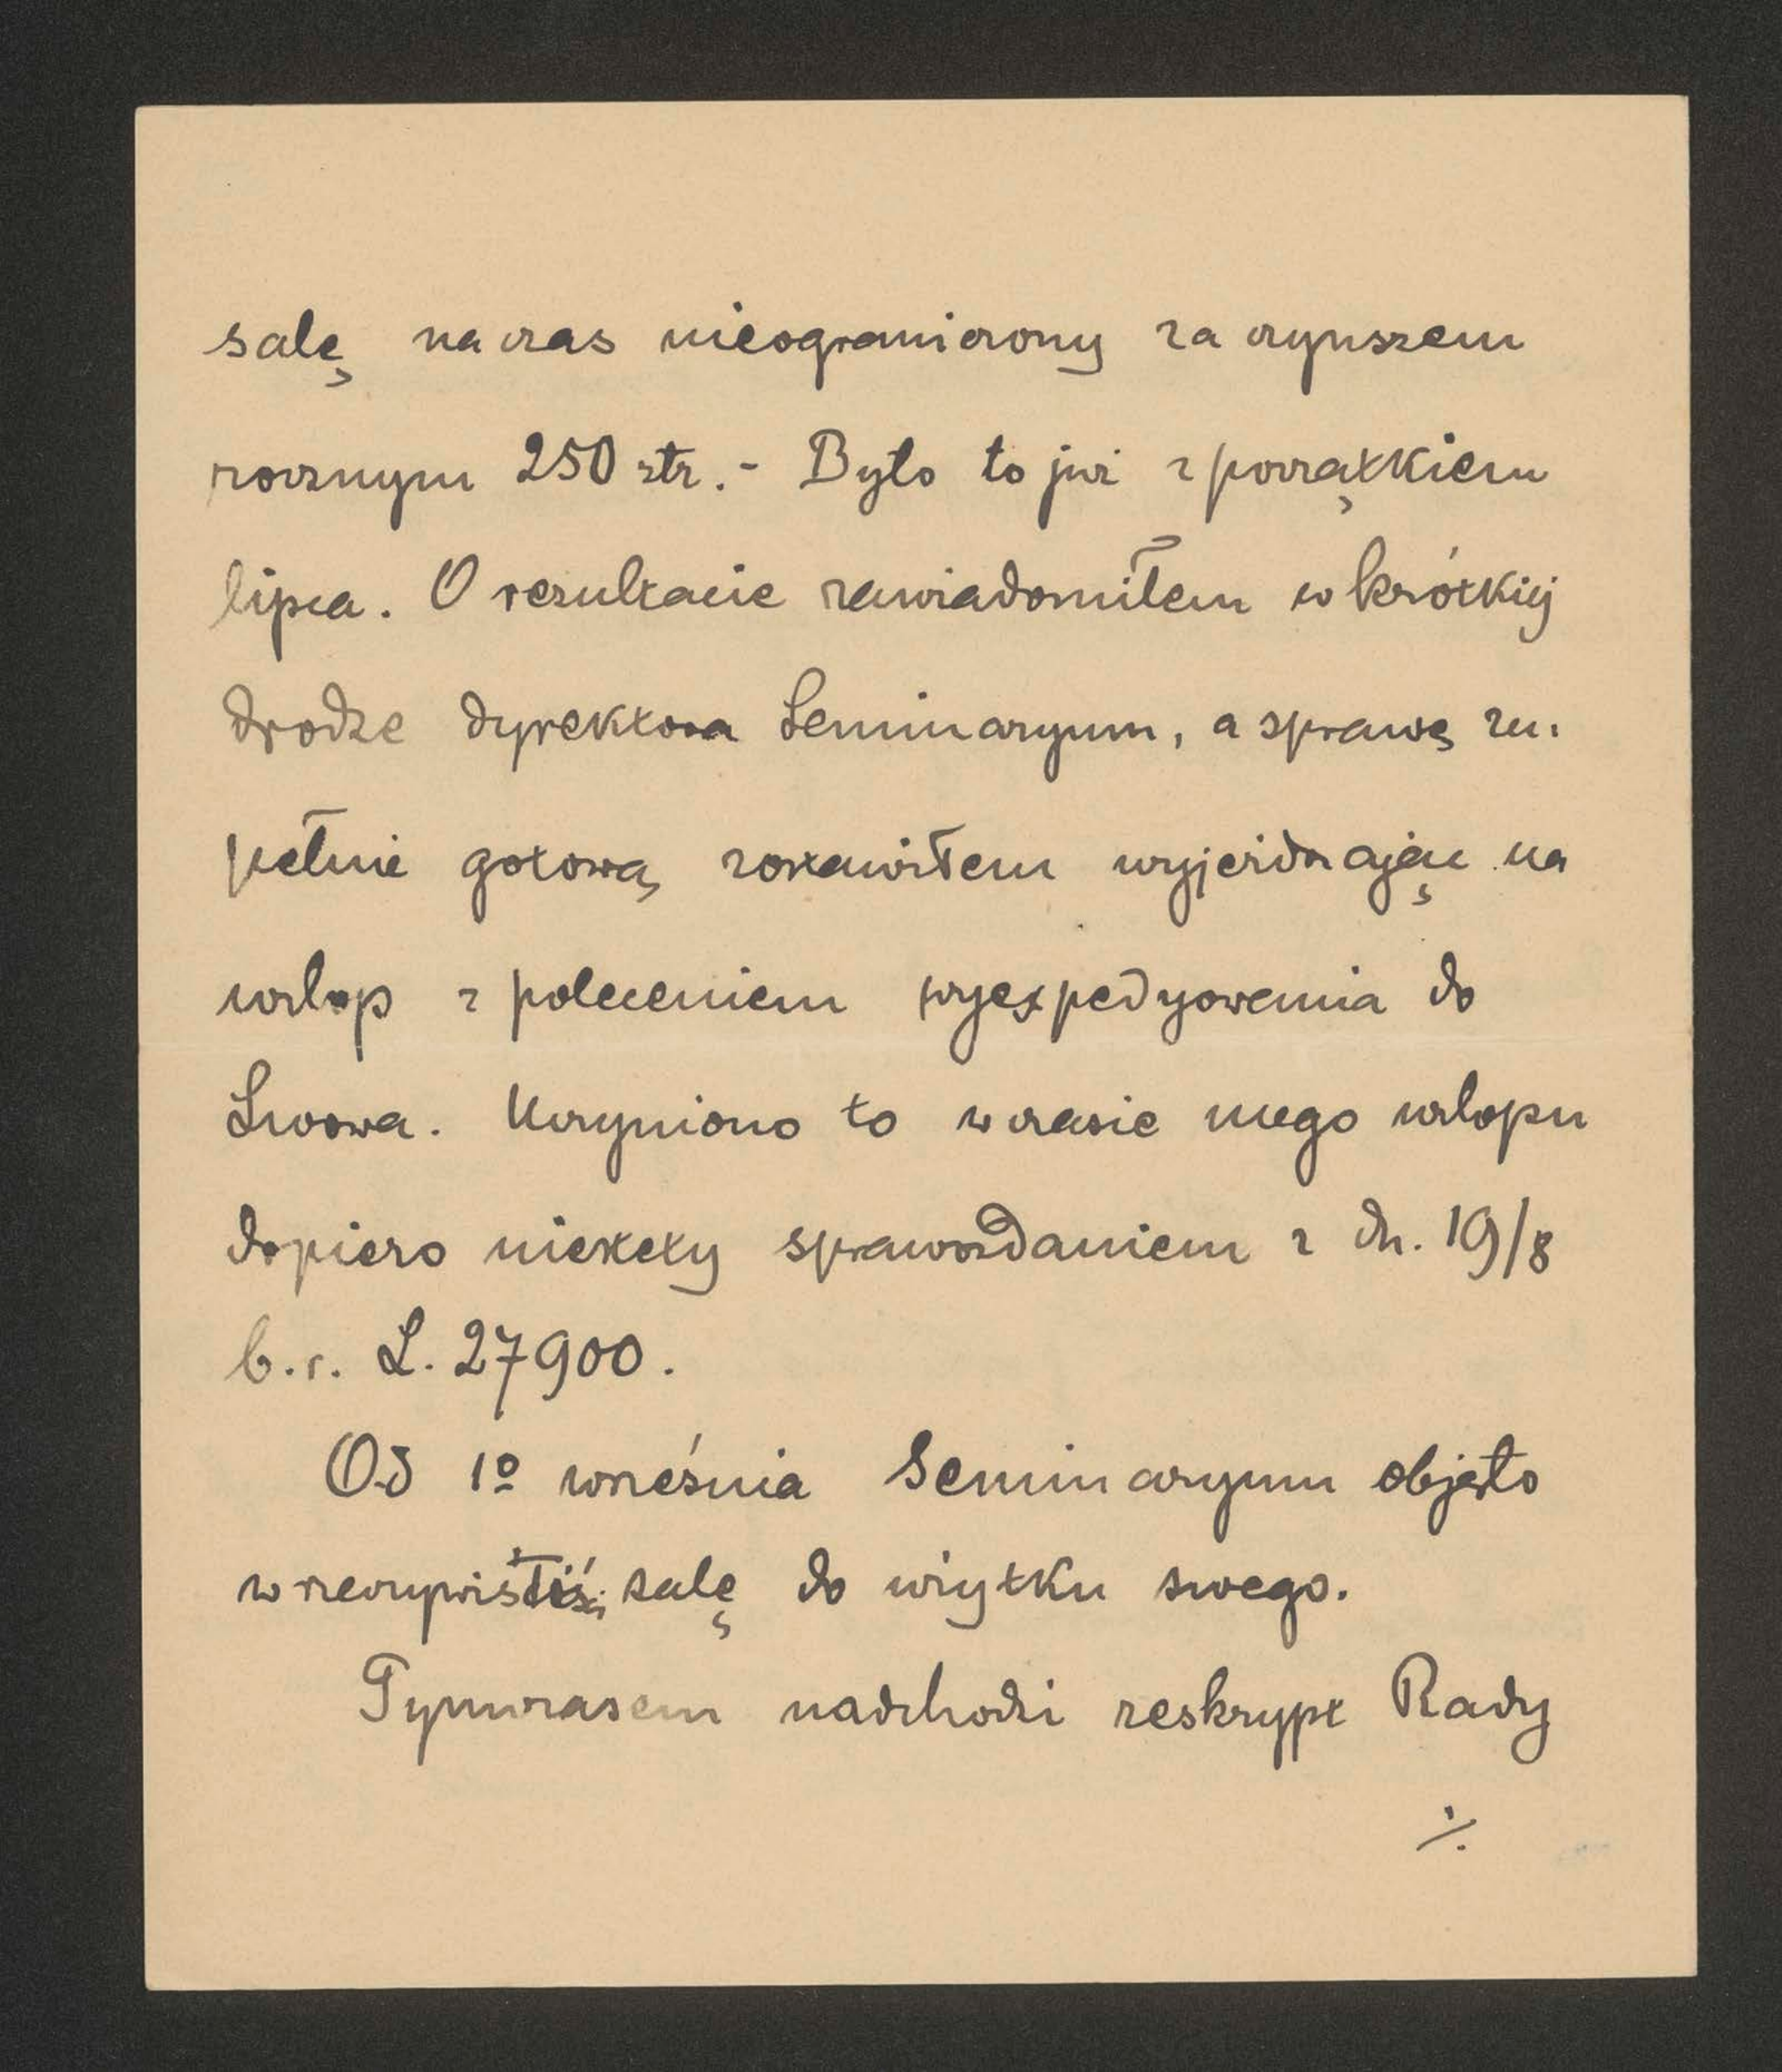 salę na czas nieograniczony za czynszem
rocznym 250 złr. - Było to już z początkiem
lipca. O rezultacie zawiadomiłem w krótkiej
drodze dyrektora Seminaryum, a sprawę zu-
pełnie gotową zostawiłem wyjeżdżając na
urlop z poleceniem wyexpedyowania do
Lwowa. Uczyniono to w czasie mego urlopu
dopiero niestety sprawozdaniem z dn. 19/8
b.r. L. 27900.
Od 1º września Seminaryum objęło
w rzeczywistości salę do użytku swego.
Tymczasem nadchodzi reskrypt Rady
./.